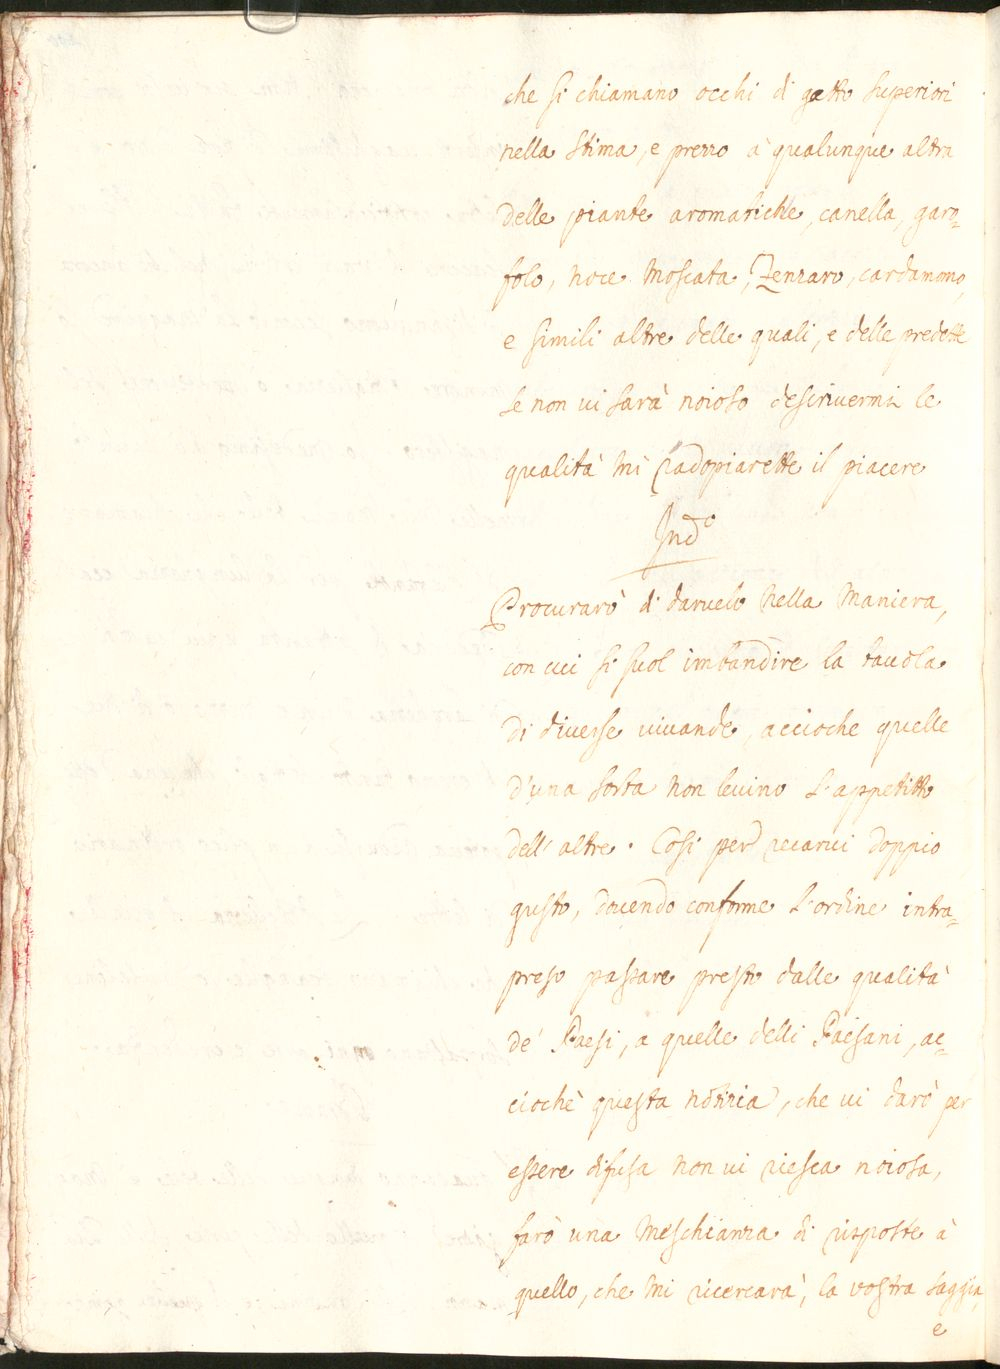 che si chiamano occhi di gatto superiori
nella stima, e prezzo à qualunque altra
delle piante aromatiche, canella, garo-
folo, noce Moscata, Zenzaro, cardamomo,
e simili altre delle quali, e delle predette
se non vi sarà noioso descrivermi le
qualità mi radopiarette il piacere
Ind.º
Procurarò di darvelo nella maniera,
con cui si suol imbandire la tavola
di diverse vivande, accioche quelle
d'una sorta non levino l'appetitto
dell'altre. Cosi per recarvi doppio
gusto, dovendo conforme l'ordine intra-
preso passare presto dalle qualità
de' Paesi, a quelle delli Paesani, ac-
ciochè questa notizia, che vi darò per
essere difusa non vi riesca noiosa,
farò una Meschianza di risposte à
quello, che mi ricercarà, la vostra saggia,
e